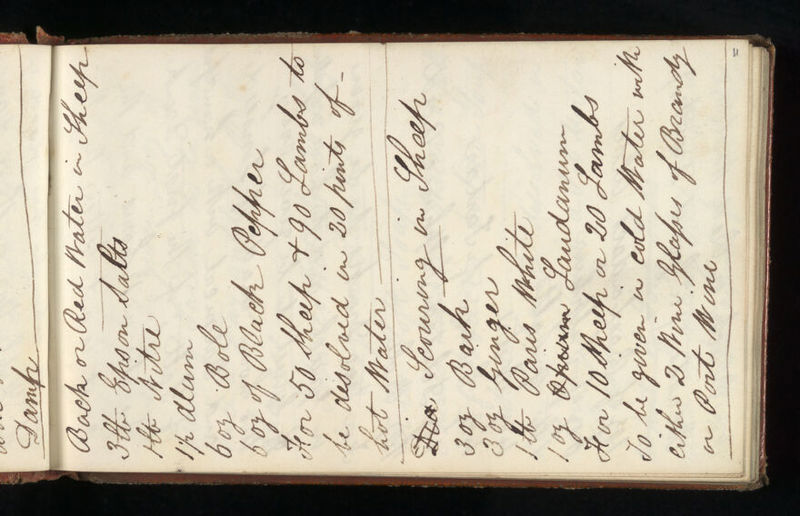 Back or Red Water in Sheep
3 lb Epsom Salts
1 lb Nitre
1½ Alum
6 oz Bole
6 oz of Black Pepper
For 50 Sheep & 90 Lambs to
be desolved in 20 pints of
hot Water
Scouring in Sheep
3 oz Bark
3 oz Ginger
1 lb Paris White
1 oz Opium Laudanum
For 10 Sheep or 20 Lambs
To be given in cold Water with
either 2 Wine Glasses of Brandy
or Port Wine
Damp